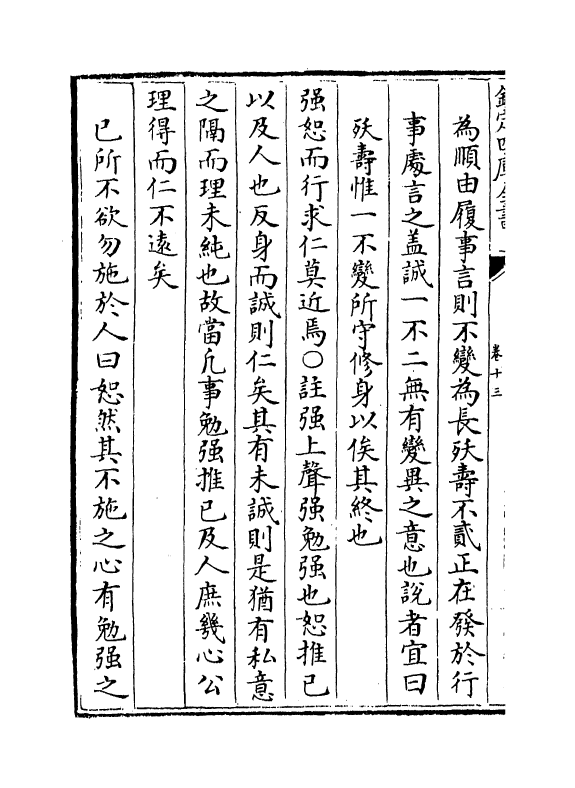 欽定四庫全書
卷十三
為順由履事言則不變為長殀壽不貳正在發於行
事處言之盖誠一不二無有變異之意也說者宜曰
殀壽惟一不變所守修身以俟其終也
强恕而行求仁莫近焉○註强上聲强勉强也恕推已
以及人也反身而誠則仁矣其有未誠則是猶有私意
之隔而理未純也故當凢事勉强推已及人庶幾心公
理得而仁不遠矣
已所不欲勿施於人曰恕然其不施之心有勉强之